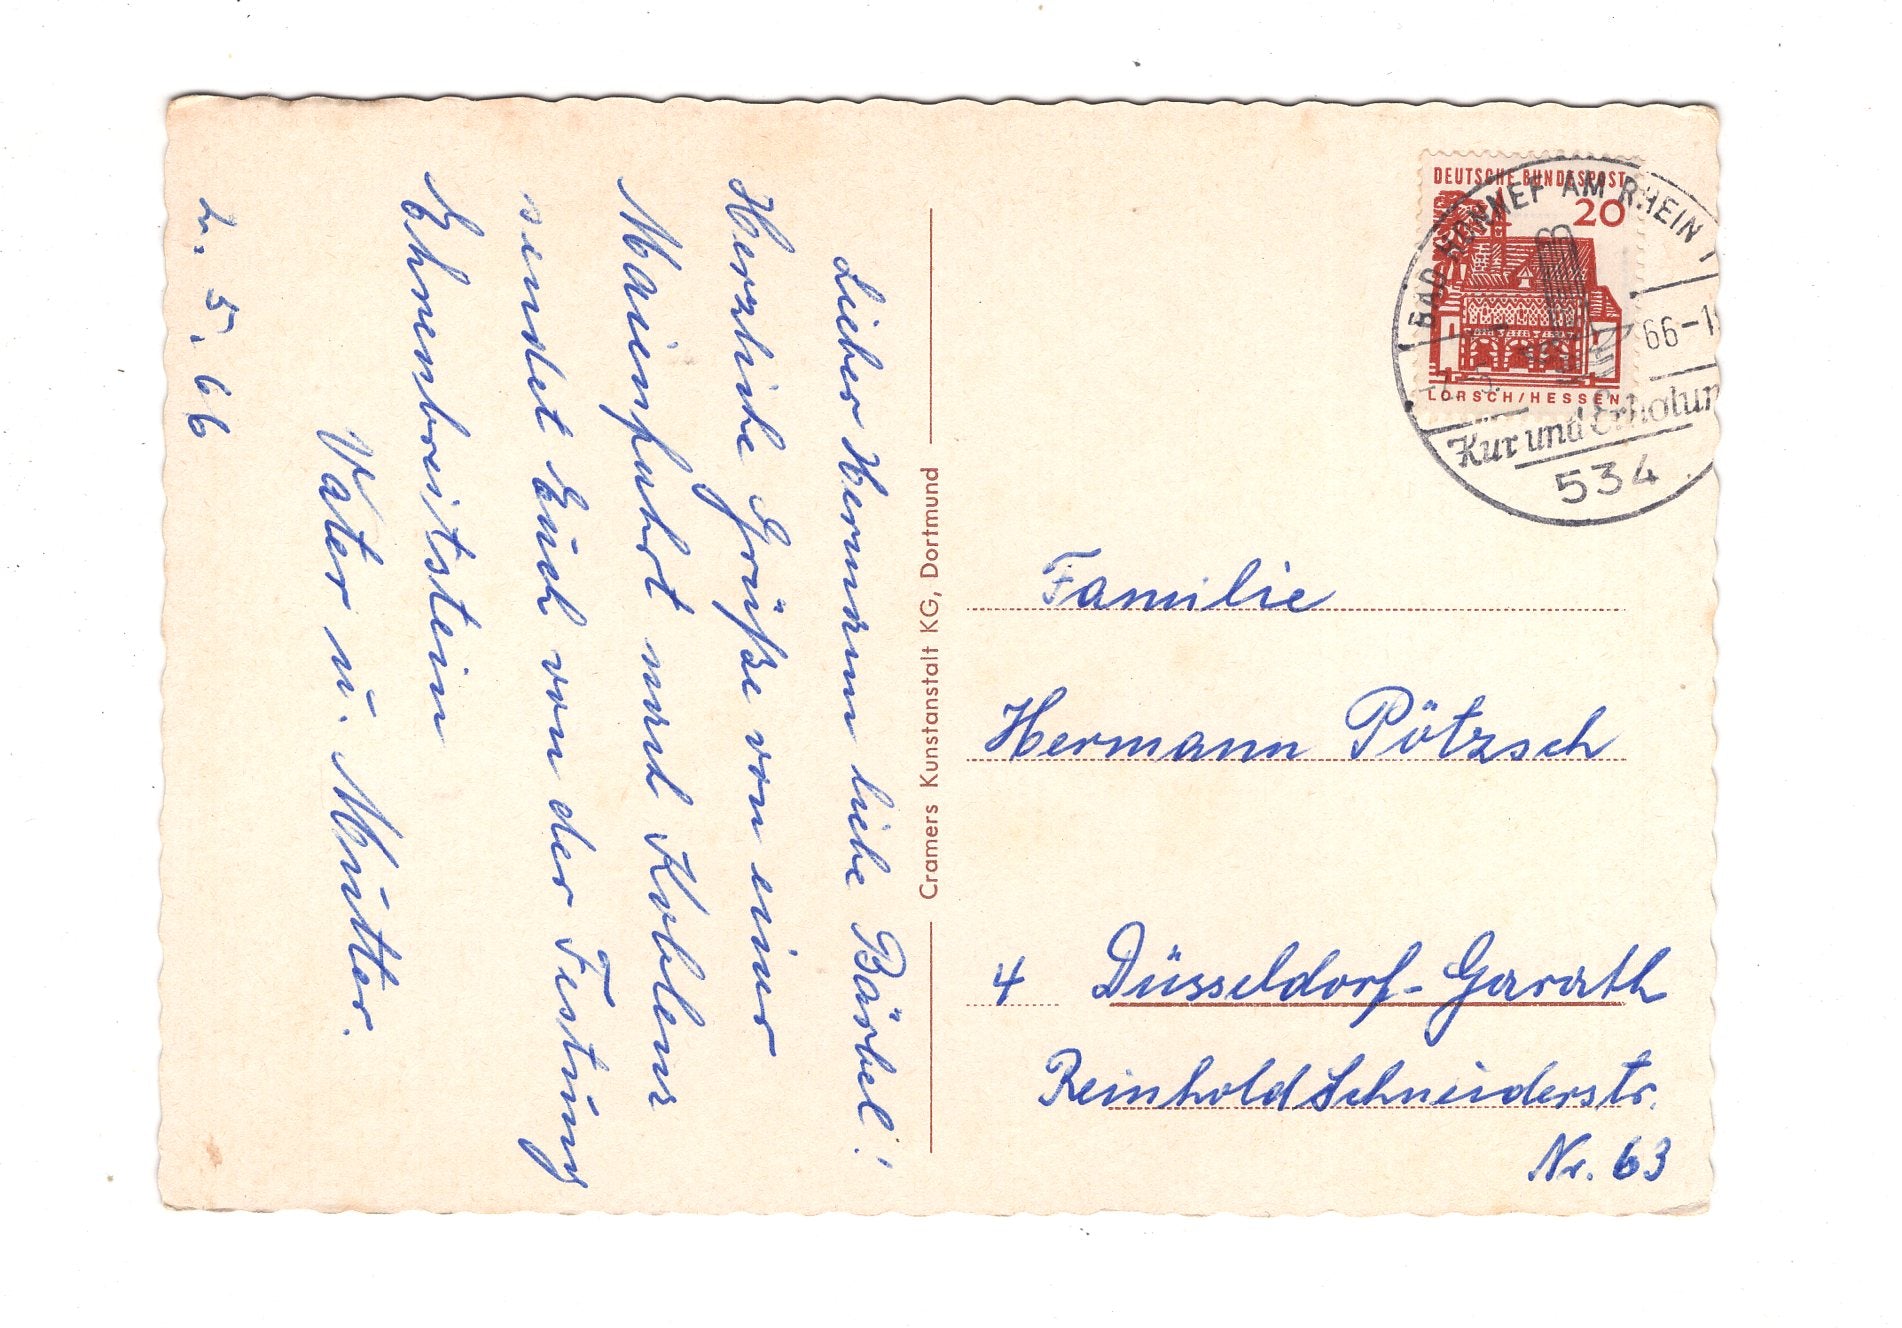 Lieber Hermann liebe Bärbel!
Herzliche Grüße von einer
Maienfahrt nach Koblenz
sendet Euch von der Festung
Ehrenbreitstein
Vater u. Mutter.
2. 5. 66
Cramers Kunstanstalt KG, Dortmund
DEUTSCHE BUNDESPOST
20
LORSCH/HESSEN
BAD HONNEF AM RHEIN
66-1
Kur und Erholun
534
Familie
Hermann Pötzsch
4 Düsseldorf-Garath
Reinhold Schneiderstr.
Nr. 63